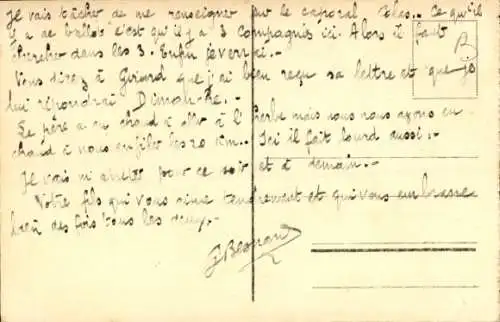 Je vais tâcher de me renseigner sur le caporal ... Ce qu'il
y a de ballot c'est qu'il y a 3 compagnies ici. Alors il faut
chercher dans les 3. Enfin je verrai.-
Vous direz à Girard que j'ai bien reçu sa lettre et que je
lui répondrai Dimanche.-
Le père a eu chaud à aller à l'herbe mais nous nous avons eu
chaud à nous enfiler les 20 km.-. Ici il fait lourd aussi.-
Je vais m'arrêter pour ce soir et à demain.-
Votre fils qui vous aime tendrement et qui vous embrasse
bien des fois tous les deux.-
B